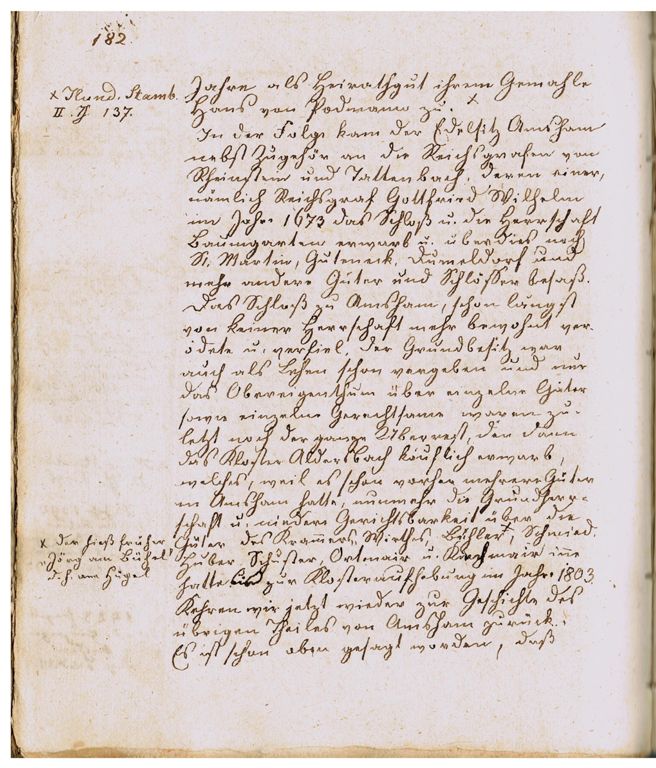 182.
x Hund. Stamb.
II. Th 137.
Jahre als Heirathgut ihrem Gemahle
Hans von Podmann zu. x
In der Folge kam der Edelsitz Amsham
nebst Zugehör an die Reichsgrafen von
Rheinstein und Tattenbach, deren einer,
nämlich Reichsgraf Gottfried Wilhelm
im Jahre 1673 das Schloß u. die Herrschaft
Baumgarten erwarb u. überdies noch
St. Martin, Guteneck, Dumeldorf und
mehr andere Güter und Schlösser besaß.
Das Schloß zu Amsham, schon längst
von keiner Herrschaft mehr bewohnt ver-
ödete u. verfiel, der Grundbesitz war
auch als Lehen schon vergeben und nur
das Obereigenthum über einzelne Güter
sowie einzelne Gerechtsame waren zu-
letzt noch der ganze Überrest, den dann
das Kloster Aldersbach käuflich erwarb,
welches, weil es schon vorher mehrere Güter
in Amsham hatte, nunmehr die Grundherr-
schaft u. niedere Gerichtsbarkeit über die
x der hieß früher
Jörg am Bühel
d. h. am Hügel
Güter des Kramers, Wirthes, Bühler x, Schmied,
Huber, Schuster, Ortmair u. Kirchmair inne
hatte bis zur Klosteraufhebung im Jahre 1803.
Kehren wir jetzt wieder zur Geschichte des
übrigen Theiles von Amsham zurück.
Es ist schon oben gesagt worden, daß